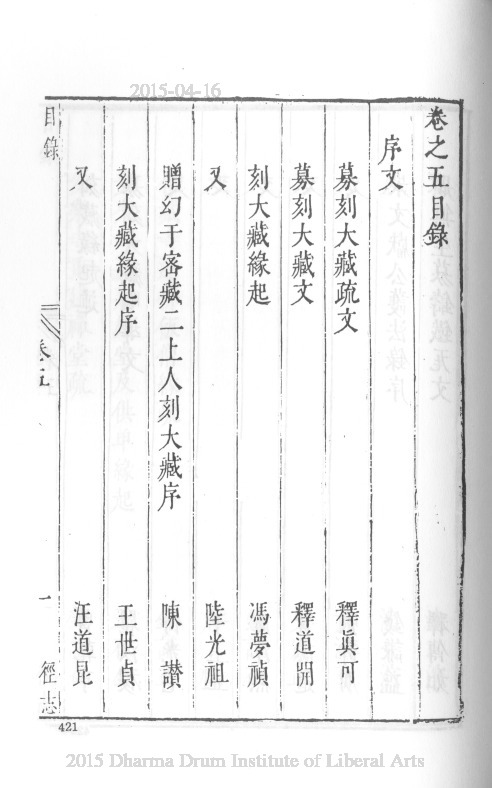 2015-04-16
卷之五目錄
序文
募刻大藏疏文 釋眞可
募刻大藏文 釋道開
刻大藏緣起 馮夢禎
又 陸光祖
贈幻于密藏二上人刻大藏序 陳讃
刻大藏緣起序 王世貞
又 汪道昆
目錄 卷五 一 徑志
421
2015 Dharma Drum Institute of Liberal Arts